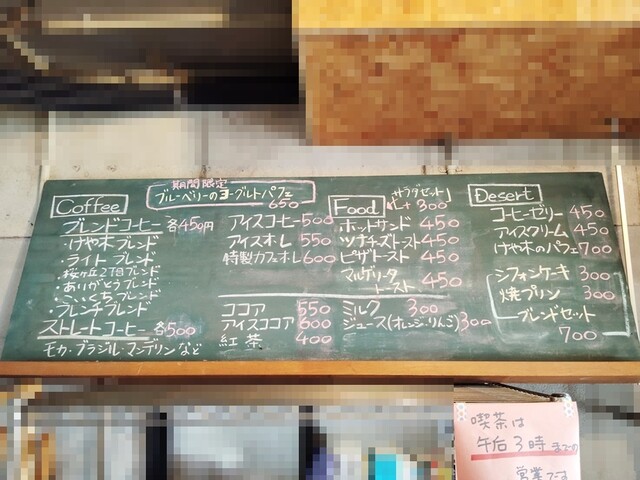 期間限定
ブルーベリーのヨーグルトパフェ
650
Coffee
ブレンドコーヒー 各450円
・けや木ブレンド
・ライトブレンド
・桜ヶ丘2丁目ブレンド
・ありがとうブレンド
・こいくちブレンド
・フレンチブレンド
ストレートコーヒー 各500
モカ・ブラジル・マンデリンなど
アイスコーヒー 500
アイスオ・レ 550
特製カフェオレ 600
ココア 550
アイスココア 600
紅茶 400
Food
サラダセット
+ 300
ホットサンド 450
ツナチーズトースト 450
ピザトースト 450
マルゲリータ
トースト 450
ミルク 300
ジュース(オレンジ・りんご) 300
Desert
コーヒーゼリー 450
アイスクリーム 450
けや木のパフェ 700
シフォンケーキ 300
焼プリン 300
ブレンドセット
700
喫茶は
午后3時までの
営業です